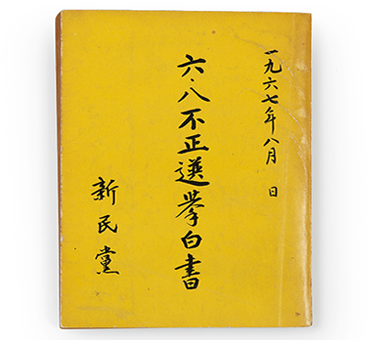 一九六七年八月 日
六·八不正選擧白書
新民黨